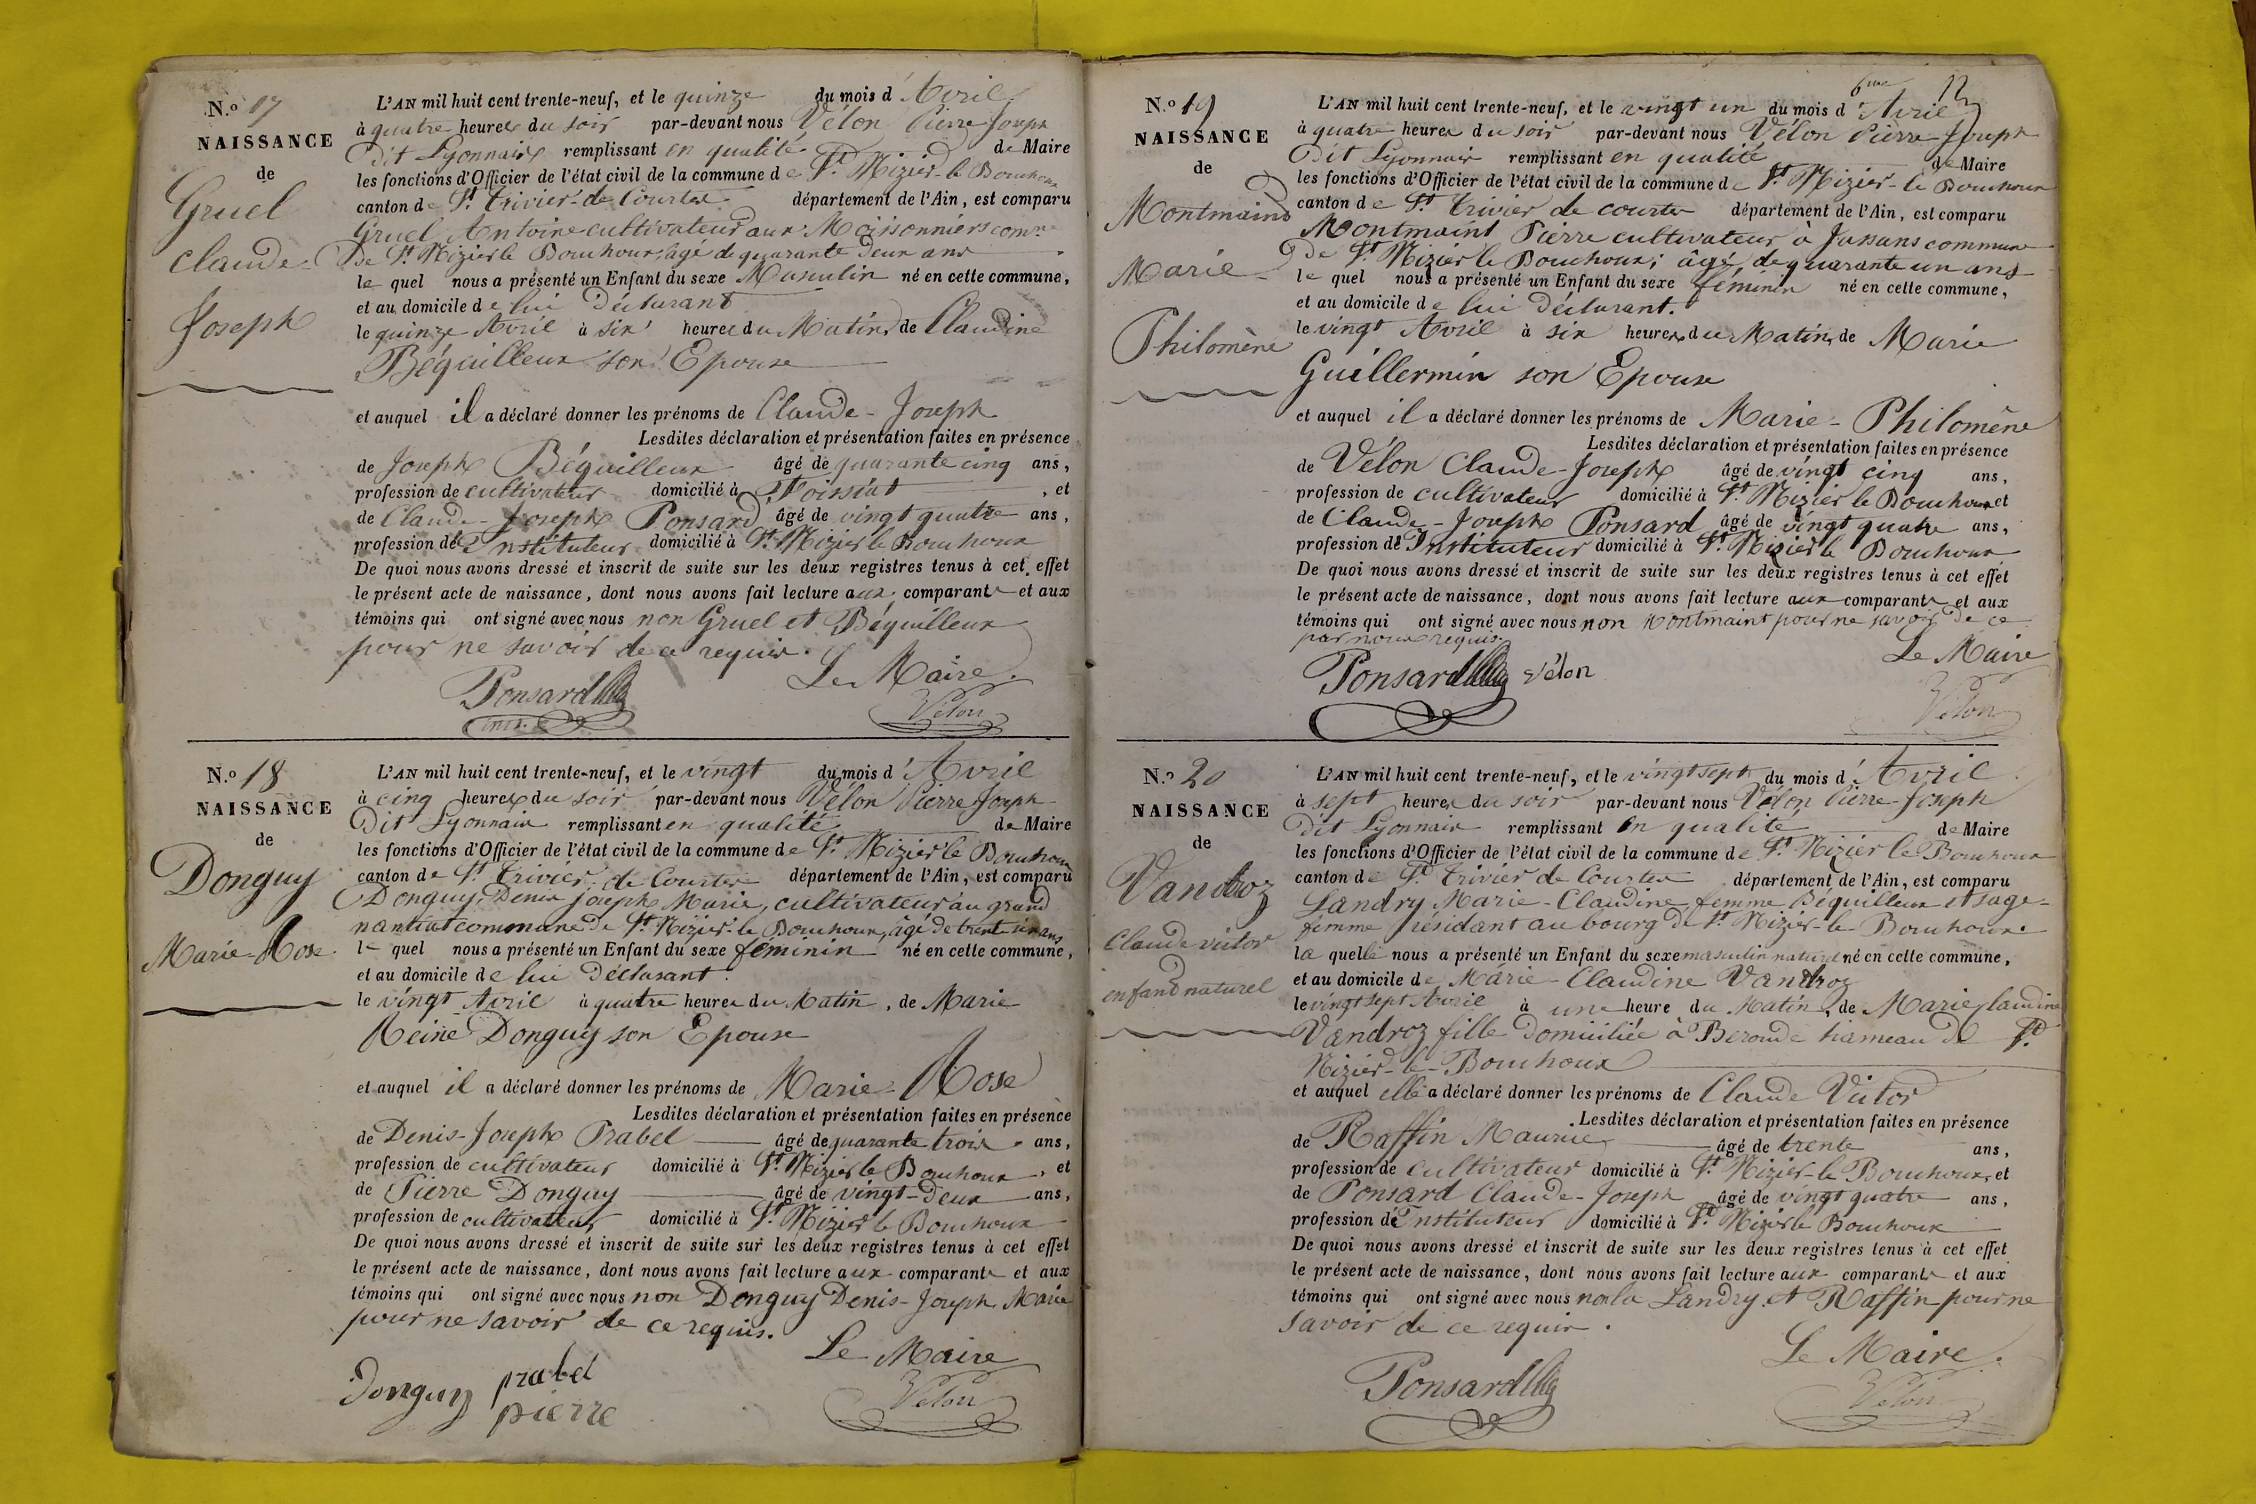 N.o 17
NAISSANCE
de
Gruel
Claude
Joseph
L'AN mil huit cent trente-neuf, et le quinze du mois d'Avril
à quatre heures du soir par-devant nous Vélon Pierre Joseph
Dit Lyonnais remplissant en qualité de Maire
les fonctions d'Officier de l'état civil de la commune de St. Nizier-le Bouchoux
canton de St. Trivier-de Courtes département de l'Ain, est comparu
Gruel Antoine cultivateur aux Moissonniers comne
de St. Nizier le Bouchoux, âgé de quarante deux ans
le quel nous a présenté un Enfant du sexe Masculin né en cette commune,
et au domicile de lui Déclarant
le quinze Avril à six heures du Matin, de Claudine
Béguilleux son Epouse
et auquel il a déclaré donner les prénoms de Claude-Joseph
Lesdites déclaration et présentation faites en présence
de Joseph Béguilleux âgé de quarante cinq ans,
profession de cultivateur domicilié à Foissiat, et
de Claude-Joseph Ponsard âgé de vingt quatre ans,
profession de Instituteur domicilié à St. Nizier le Bouchoux
De quoi nous avons dressé et inscrit de suite sur les deux registres tenus à cet effet
le présent acte de naissance, dont nous avons fait lecture aux comparants et aux
témoins qui ont signé avec nous non Gruel et Béguilleux
pour ne savoir de ce requis.
Le Maire
Ponsard
Vélon
N.o 18
NAISSANCE
de
Donguy
Marie-Rose
L'AN mil huit cent trente-neuf, et le vingt du mois d'Avril
à cinq heures du soir par-devant nous Vélon Pierre Joseph
Dit Lyonnais remplissant en qualité de Maire
les fonctions d'Officier de l'état civil de la commune de St. Nizier le Bouchoux
canton de St. Trivier de Courtes département de l'Ain, est comparu
Donguy Denis Joseph Marie, cultivateur au grand
nantiat commune de St. Nizier-le Bouchoux, âgé de trente six ans
le quel nous a présenté un Enfant du sexe féminin né en cette commune,
et au domicile de lui Déclarant
le vingt Avril à quatre heures du Matin, de Marie
Reine Donguy son Epouse
et auquel il a déclaré donner les prénoms de Marie-Rose
Lesdites déclaration et présentation faites en présence
de Denis-Joseph Prabel âgé de quarante trois ans,
profession de cultivateur domicilié à St. Nizier le Bouchoux, et
de Pierre Donguy âgé de vingt-deux ans,
profession de cultivateur domicilié à St. Nizier le Bouchoux
De quoi nous avons dressé et inscrit de suite sur les deux registres tenus à cet effet
le présent acte de naissance, dont nous avons fait lecture aux comparants et aux
témoins qui ont signé avec nous non Donguy Denis-Joseph Marie
pour ne savoir de ce requis.
Le Maire
Donguy prabel
pierre
Vélon
6me 12
N.o 19
NAISSANCE
de
Montmaint
Marie
Philomène
L'AN mil huit cent trente-neuf, et le vingt un du mois d'Avril
à quatre heures du soir par-devant nous Vélon Pierre-Joseph
Dit Lyonnais remplissant en qualité de Maire
les fonctions d'Officier de l'état civil de la commune de St. Nizier-le Bouchoux
canton de St. Trivier de courtes département de l'Ain, est comparu
Montmaint Pierre cultivateur à Jassans commune
de St. Nizier le Bouchoux; âgé de quarante un ans
le quel nous a présenté un Enfant du sexe féminin né en cette commune,
et au domicile de lui Déclarant.
le vingt Avril à six heures du Matin, de Marie
Guillermin son Epouse
et auquel il a déclaré donner les prénoms de Marie-Philomène
Lesdites déclaration et présentation faites en présence
de Vélon Claude-Joseph âgé de vingt cinq ans,
profession de cultivateur domicilié à St. Nizier le Bouchoux et
de Claude-Joseph Ponsard âgé de vingt quatre ans,
profession de Instituteur domicilié à St. Nizier le Bouchoux
De quoi nous avons dressé et inscrit de suite sur les deux registres tenus à cet effet
le présent acte de naissance, dont nous avons fait lecture aux comparants et aux
témoins qui ont signé avec nous non Montmaint pour ne savoir de ce
par nous requis.
Le Maire
Ponsard Vélon
Vélon
N.o 20
NAISSANCE
de
Vandroz
Claude victor
enfant naturel
L'AN mil huit cent trente-neuf, et le vingt sept du mois d'Avril
à sept heures du soir par-devant nous Vélon Pierre-Joseph
Dit Lyonnais remplissant en qualité de Maire
les fonctions d'Officier de l'état civil de la commune de St. Nizier le Bouchoux
canton de St. Trivier de Courtes département de l'Ain, est comparu
Landry Marie-Claudine femme Béguilleux et sage-
femme résidant au bourg de St. Nizier-le-Bouchoux.
la quelle nous a présenté un Enfant du sexe masculin naturel né en cette commune,
et au domicile de Marie-Claudine Vandroz
le vingt sept Avril à une heure du Matin, de Marie Claudine
Vandroz fille domiciliée à Beroude hameau de St.
Nizier-le-Bouchoux
et auquel elle a déclaré donner les prénoms de Claude Victor
Lesdites déclaration et présentation faites en présence
de Raffin Maurice âgé de trente ans,
profession de cultivateur domicilié à St. Nizier-le Bouchoux, et
de Ponsard Claude-Joseph âgé de vingt quatre ans,
profession de Instituteur domicilié à St. Nizier le Bouchoux
De quoi nous avons dressé et inscrit de suite sur les deux registres tenus à cet effet
le présent acte de naissance, dont nous avons fait lecture aux comparants et aux
témoins qui ont signé avec nous non la Landry et Raffin pour ne
savoir de ce requis.
Le Maire.
Ponsard
Vélon